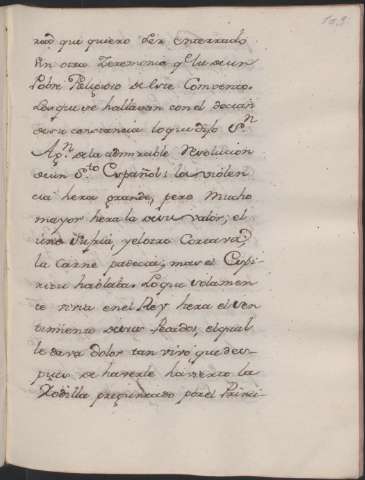 rad que quiero ser enterrado
sin otra Zeremonia qe la de un
Pobre Religioso de este Convento.
Los que se hallavan con el decian
de su constancia lo que dijo Sn
Agn de la admirable resolucion
de un Sto Español: la violen
cia hera grande, pero mucho
mayor hera la de su valor; el
uno sufria, y el otro cortava;
la carne padecia; mas el Espi
ritu hablaba. Lo que solamen
te sentia en el Rey hera el sen
timiento de sus Pecados, el qual
le dava dolor tan vivo que des-
pues de haverle havierto la
Rodilla preguntado por el Princi-